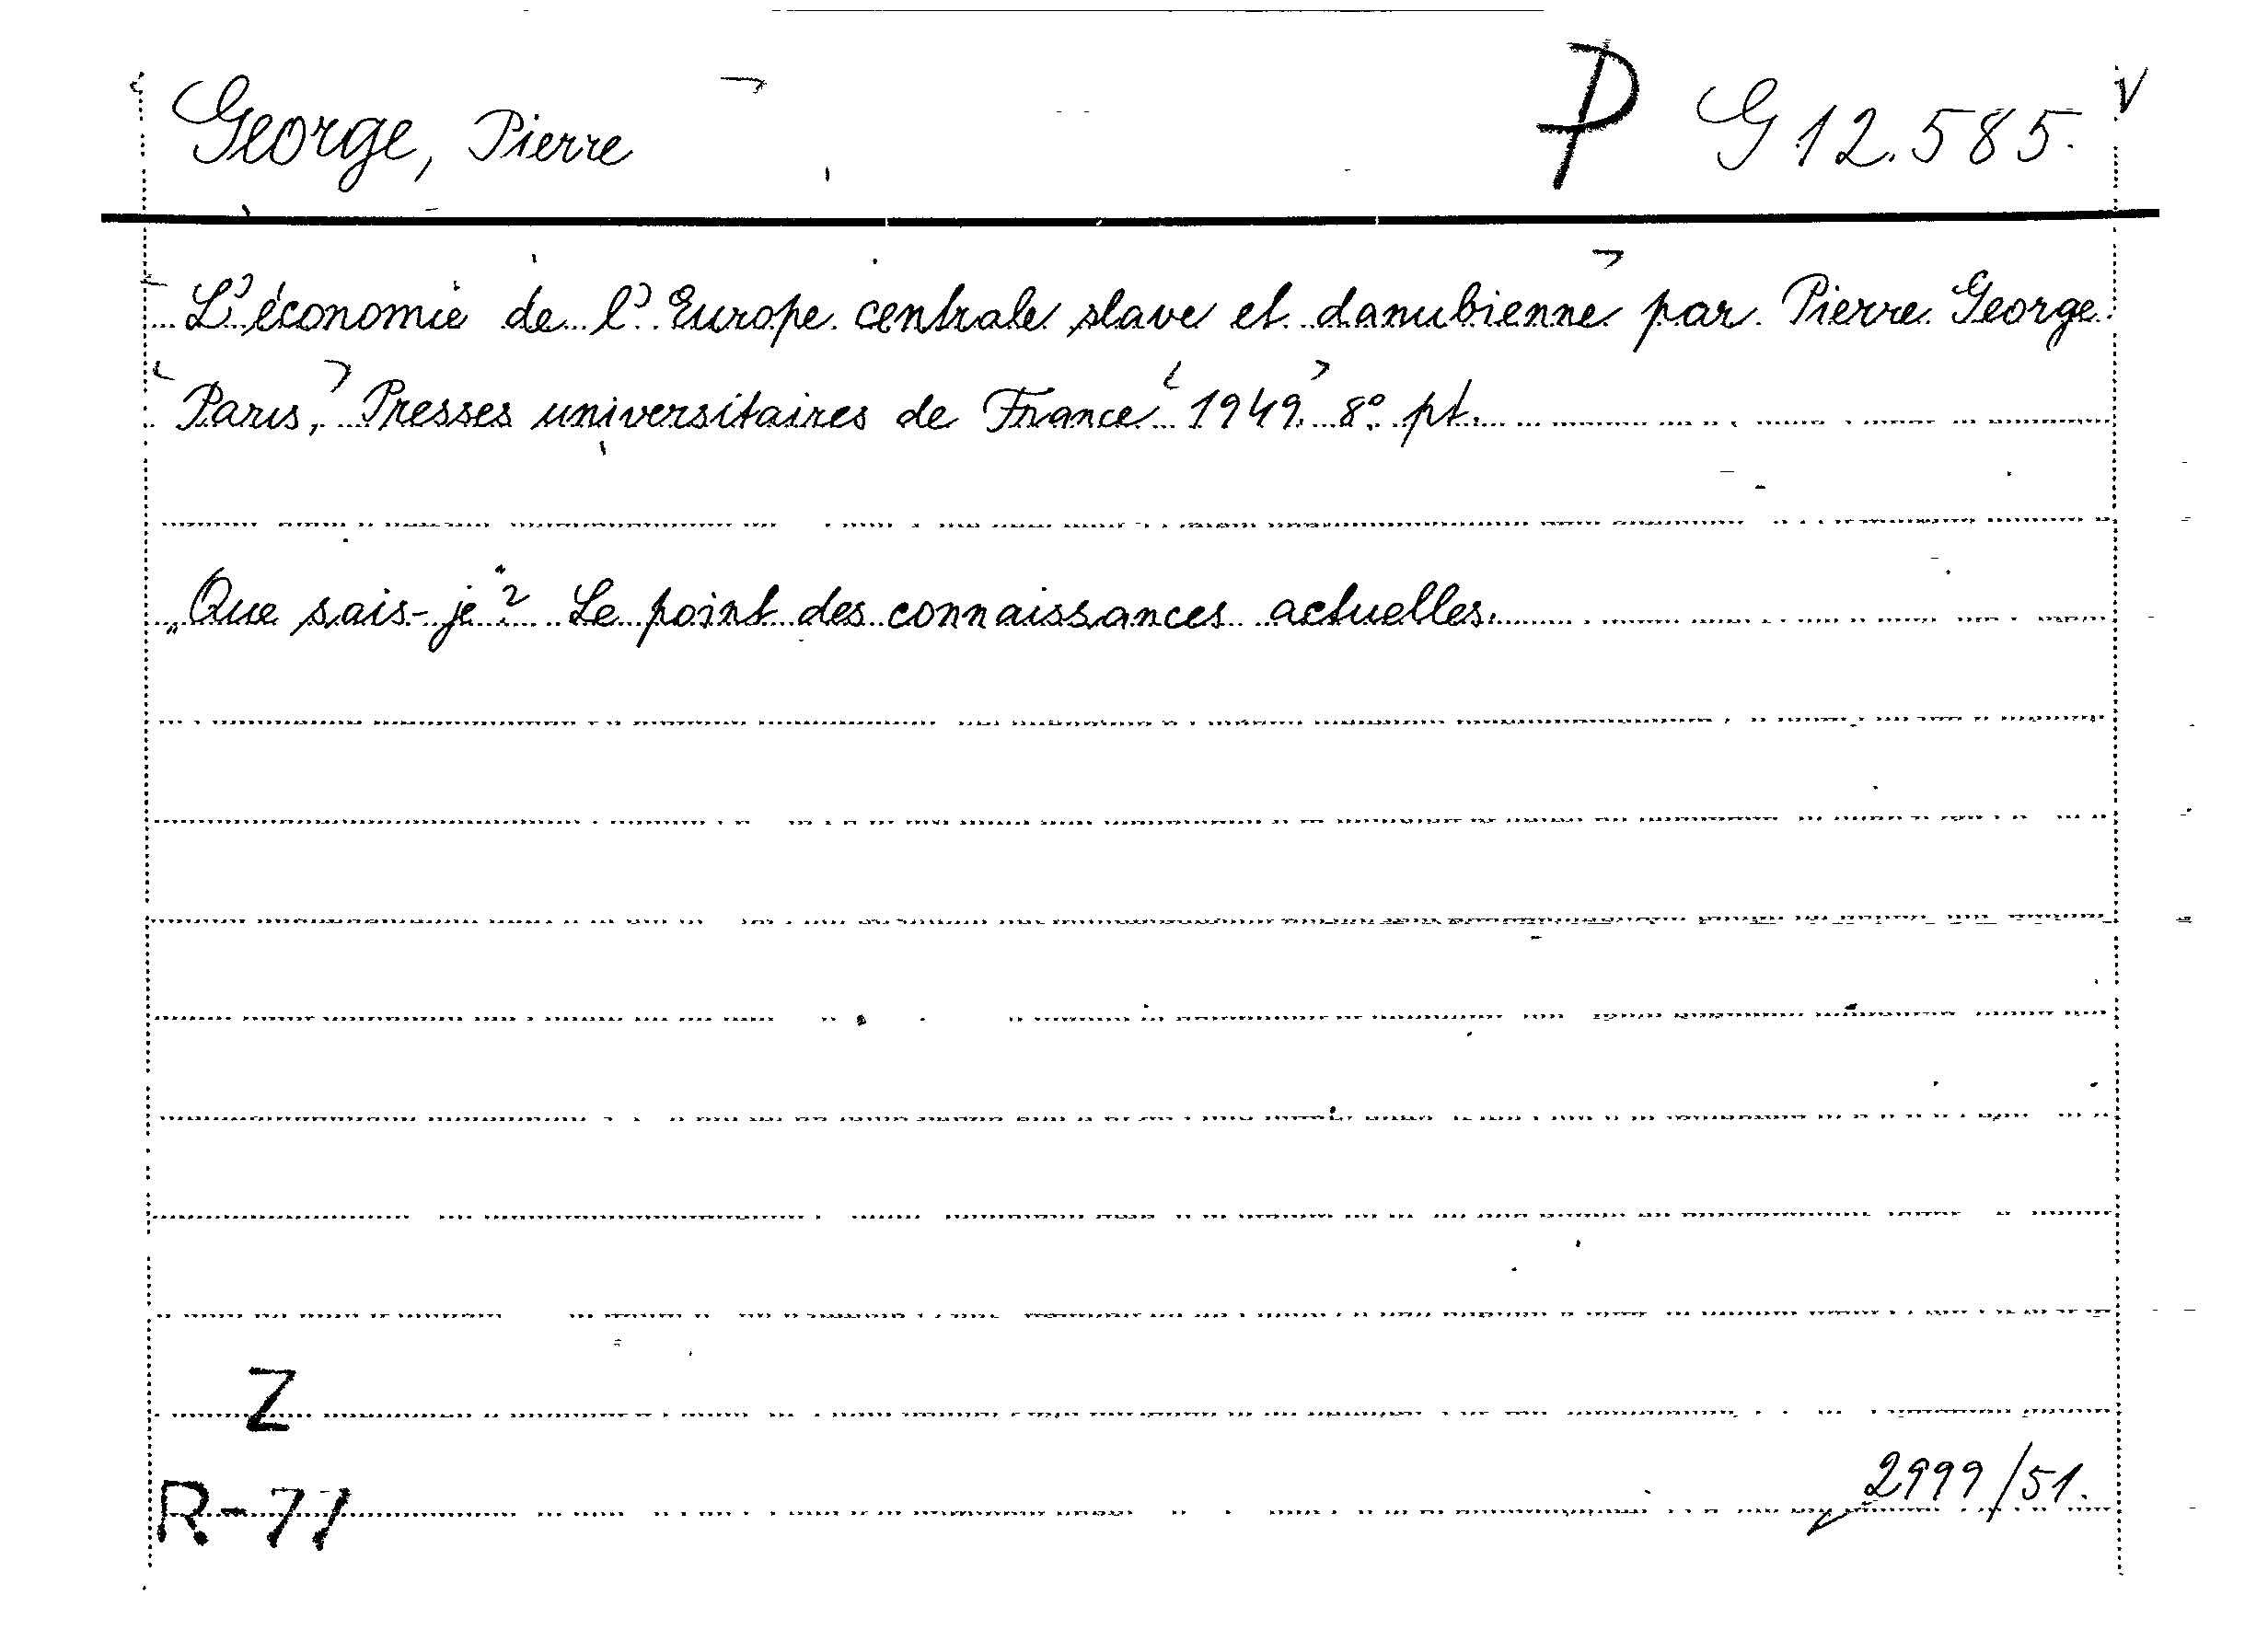 George, Pierre P G 12.585.
L'économie de l'Europe centrale slave et danubienne par Pierre George
Paris, Presses universitaires de France 1949. 8° pt.
„Que sais-je"? Le point des connaissances actuelles.
Z
R-77
2999/51.